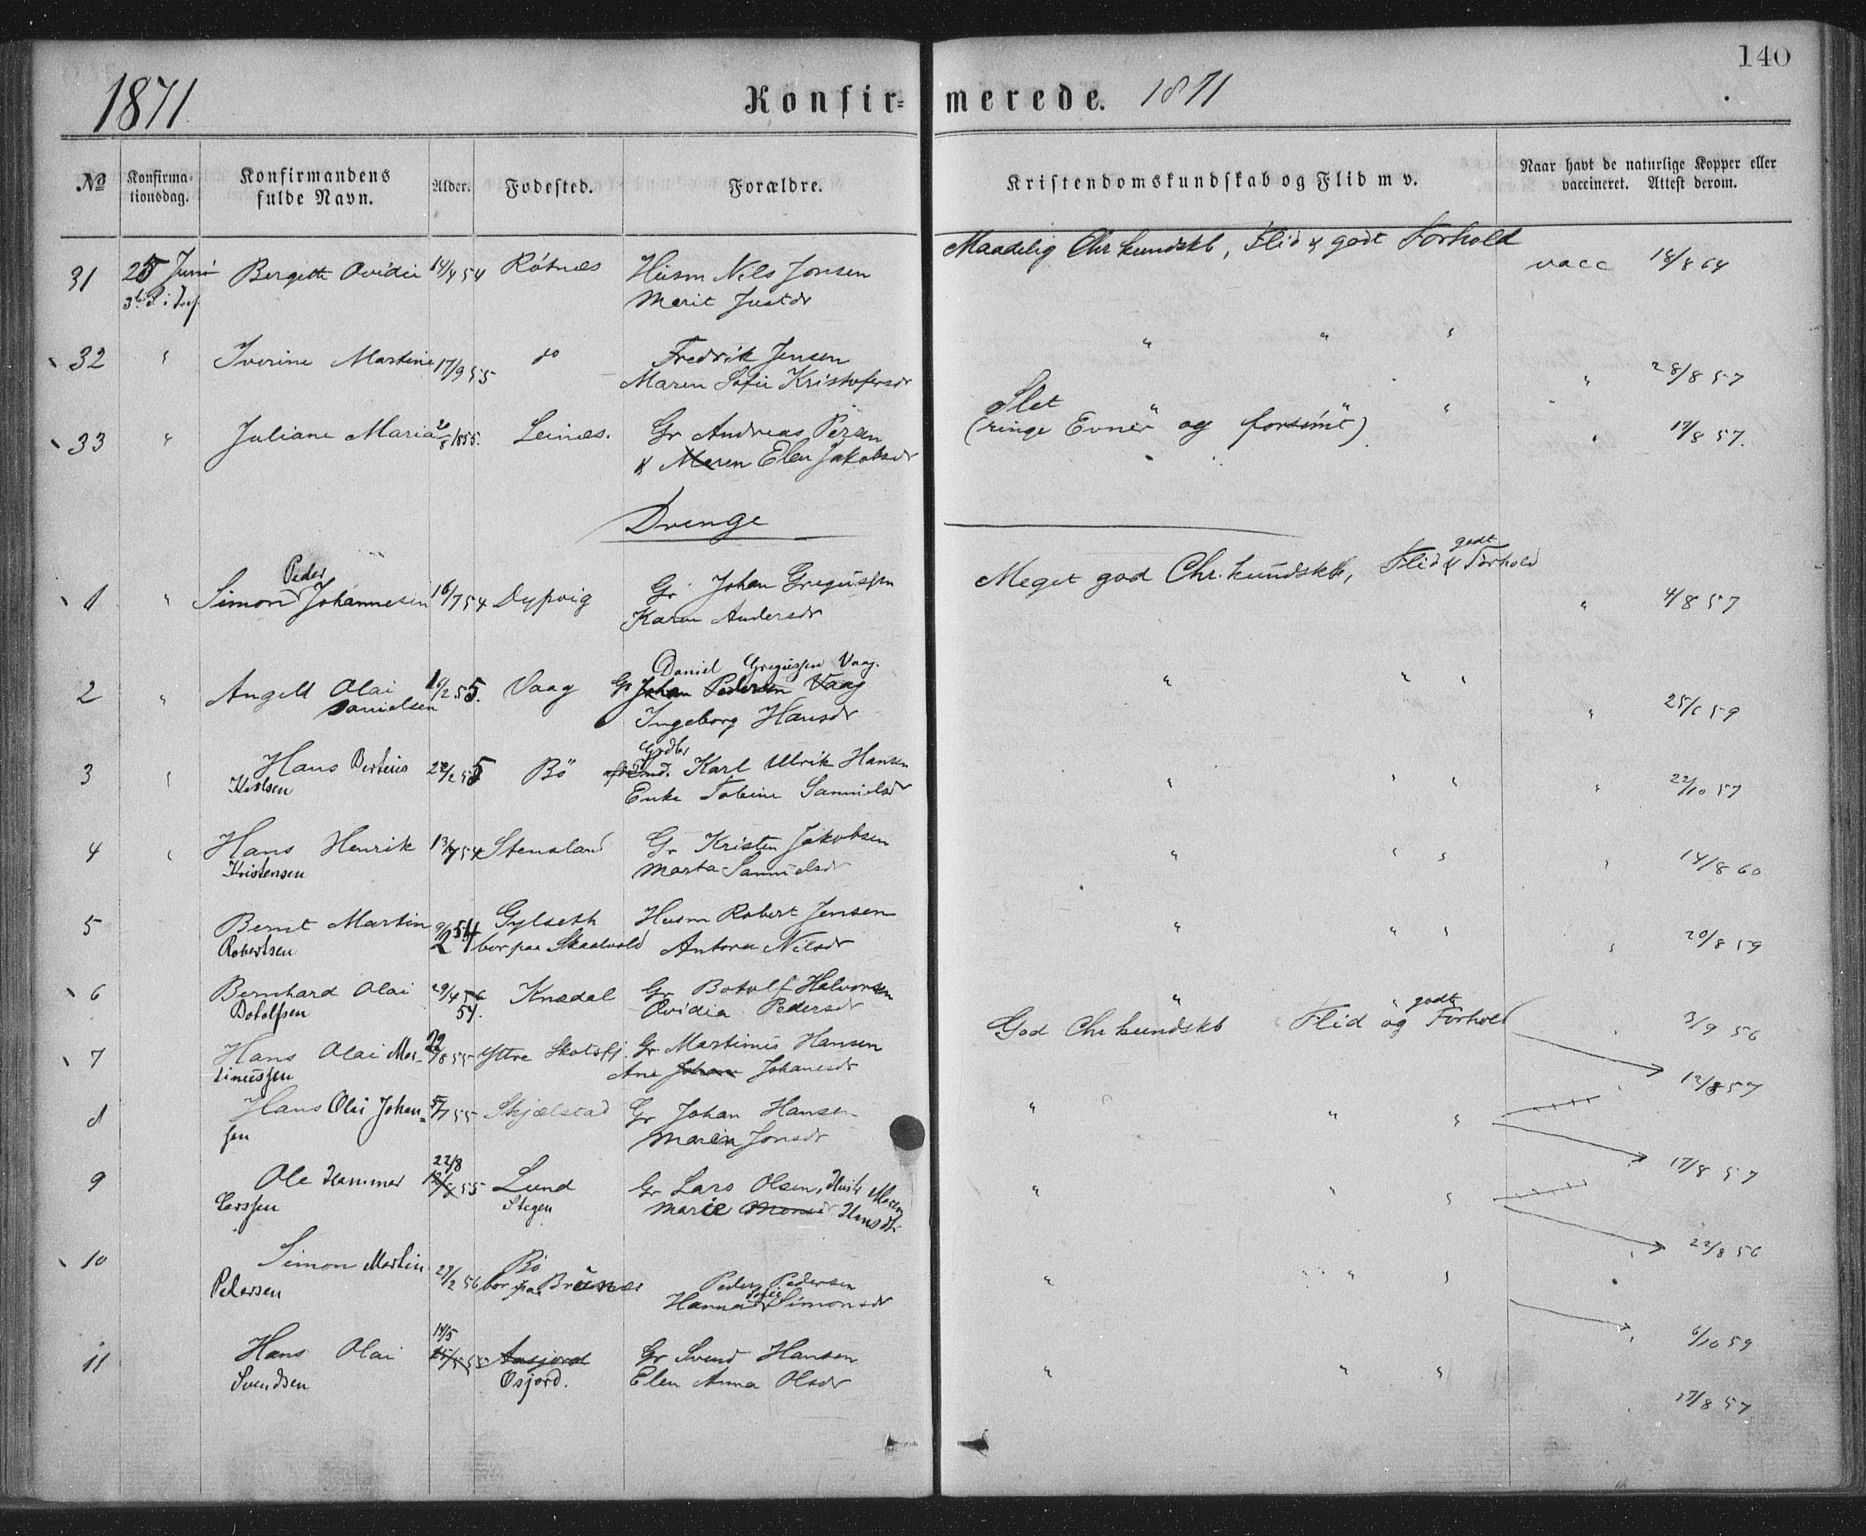 1871 Konfir= merede. 1871 140
№ Konfirma-tionsdag. Konfirmandens fulde Navn. Alder. Fodested. Forældre. Kristendomskundskab og Flid m v. Naar havt de naturlige Kopper eller vaccineret. Attest derom.
31 25 Juni Bergitte Ovidie 14/4 54 Røtnes Husm Nils Jonsen Maadelig Chr kundskb, Flid & godt Forhold vacc 18/8 64
Merit Justdr
32 " Iverine Martine 17/9 55 do Fredrik Jensen " " "
Maren Sofie Kristofersdr " 28/8 57
33 " Juliane Maria 20/8 1855. Leines. Gr Andreas Persen Slet " " "
& Maren Elen Jakobsdr (ringe Evner og forsømt) " 17/8 57.
Drenge
Peder godt
1 " Simon Johannesen 16/7 54 Dypvig Gr Johan Gregussen Meget god Chr. kundskb, Flid & Forhold " 4/8 57
Karen Andersdr
Daniel Gregussen Vaag.
2 " Angell Olai 16/2 55. Vaag Gr Johan Pedersen Vaag " " "
Danielsen Ingeborg Hansdr " 25/6 59
Grdbr
3 " Hans Bertius 22/2 55 Bö Karl Ulrik Hansen " " "
Karlsen Enke Tobine Samuelsdr " 22/10 57
4 " Hans Henrik 13/7 54 Stensland Gr Kristen Jakobsen " " "
Kristensen Marta Samuelsdr " 14/8 60
5 Bernt Martin 9/2 54 Gylseth Husm Robert Jensen " " "
Robertsen bor paa Skaalvold Antona Nilsdr " 20/8 59
6 Bernhard Olai 29/4 56 Knædal Gr Botolf Halvorsen " "
Botolfsen 54. Ovidia Pedersdr godt
God Chr kundskb Flid og Forhold " 3/9 56
7 Hans Olai Mar- 22/8 55 Yttre Skotsfj. Gr Martinus Hansen
tinussen Ane Johan Johanesdr 12/8 57
8 Hans Olai Johan- 5/7 55 Skjælstad Gr Johan Hansen " " "
sen Maren Jonsdr 17/8 57
22/8
9 Ole Hammer 12/8 55 Lund Gr Lars Olsen, Hustr Maren " " "
Larssen Stegen Marie Hansdtr. 22/8 56
10 Simon Martin 29/2 56 Bö Peder Pedersen " " "
Pedersen bor paa Brunes Hanna Sofie Simonsdr 6/10 59
14/5
11 Hans Olai 55 Aasjord Gr Svend Hansen " " "
Svendsen Osjord. Elen Anna Olsdr 17/8 57